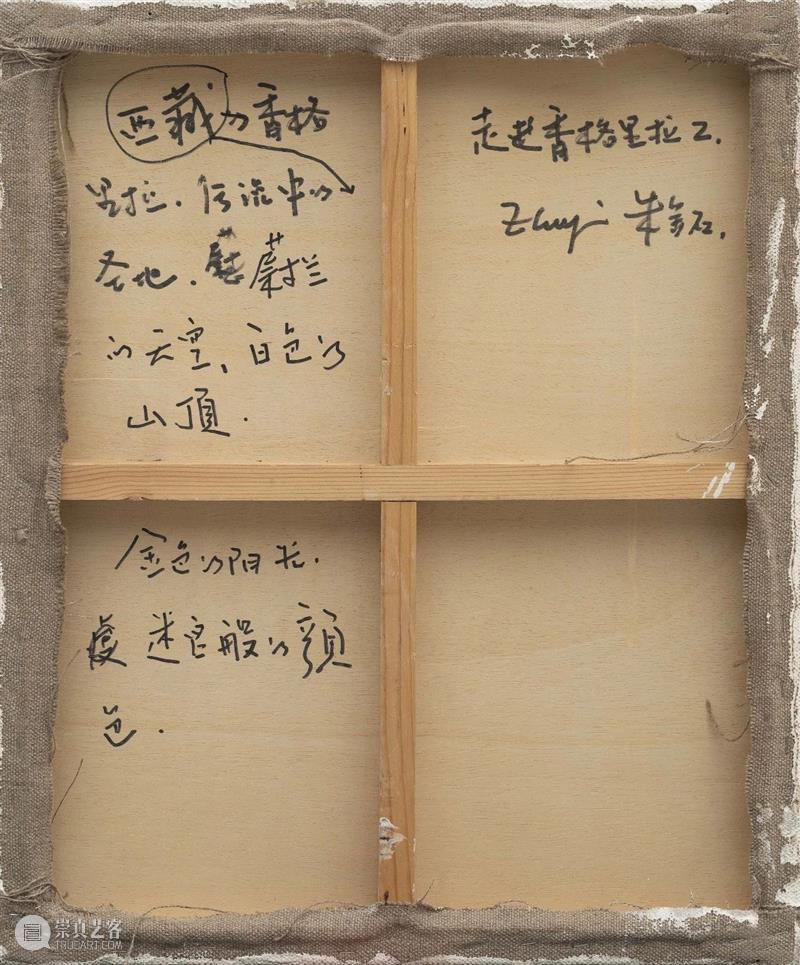 西藏的香格
里拉.流中的
圣地.蔚兰
的天空、白色的
山頂.
走进香格里拉2.
朱金石.
金色的阳光.
迷宫般的顏
色.
崇真艺客
TRUEART.COM